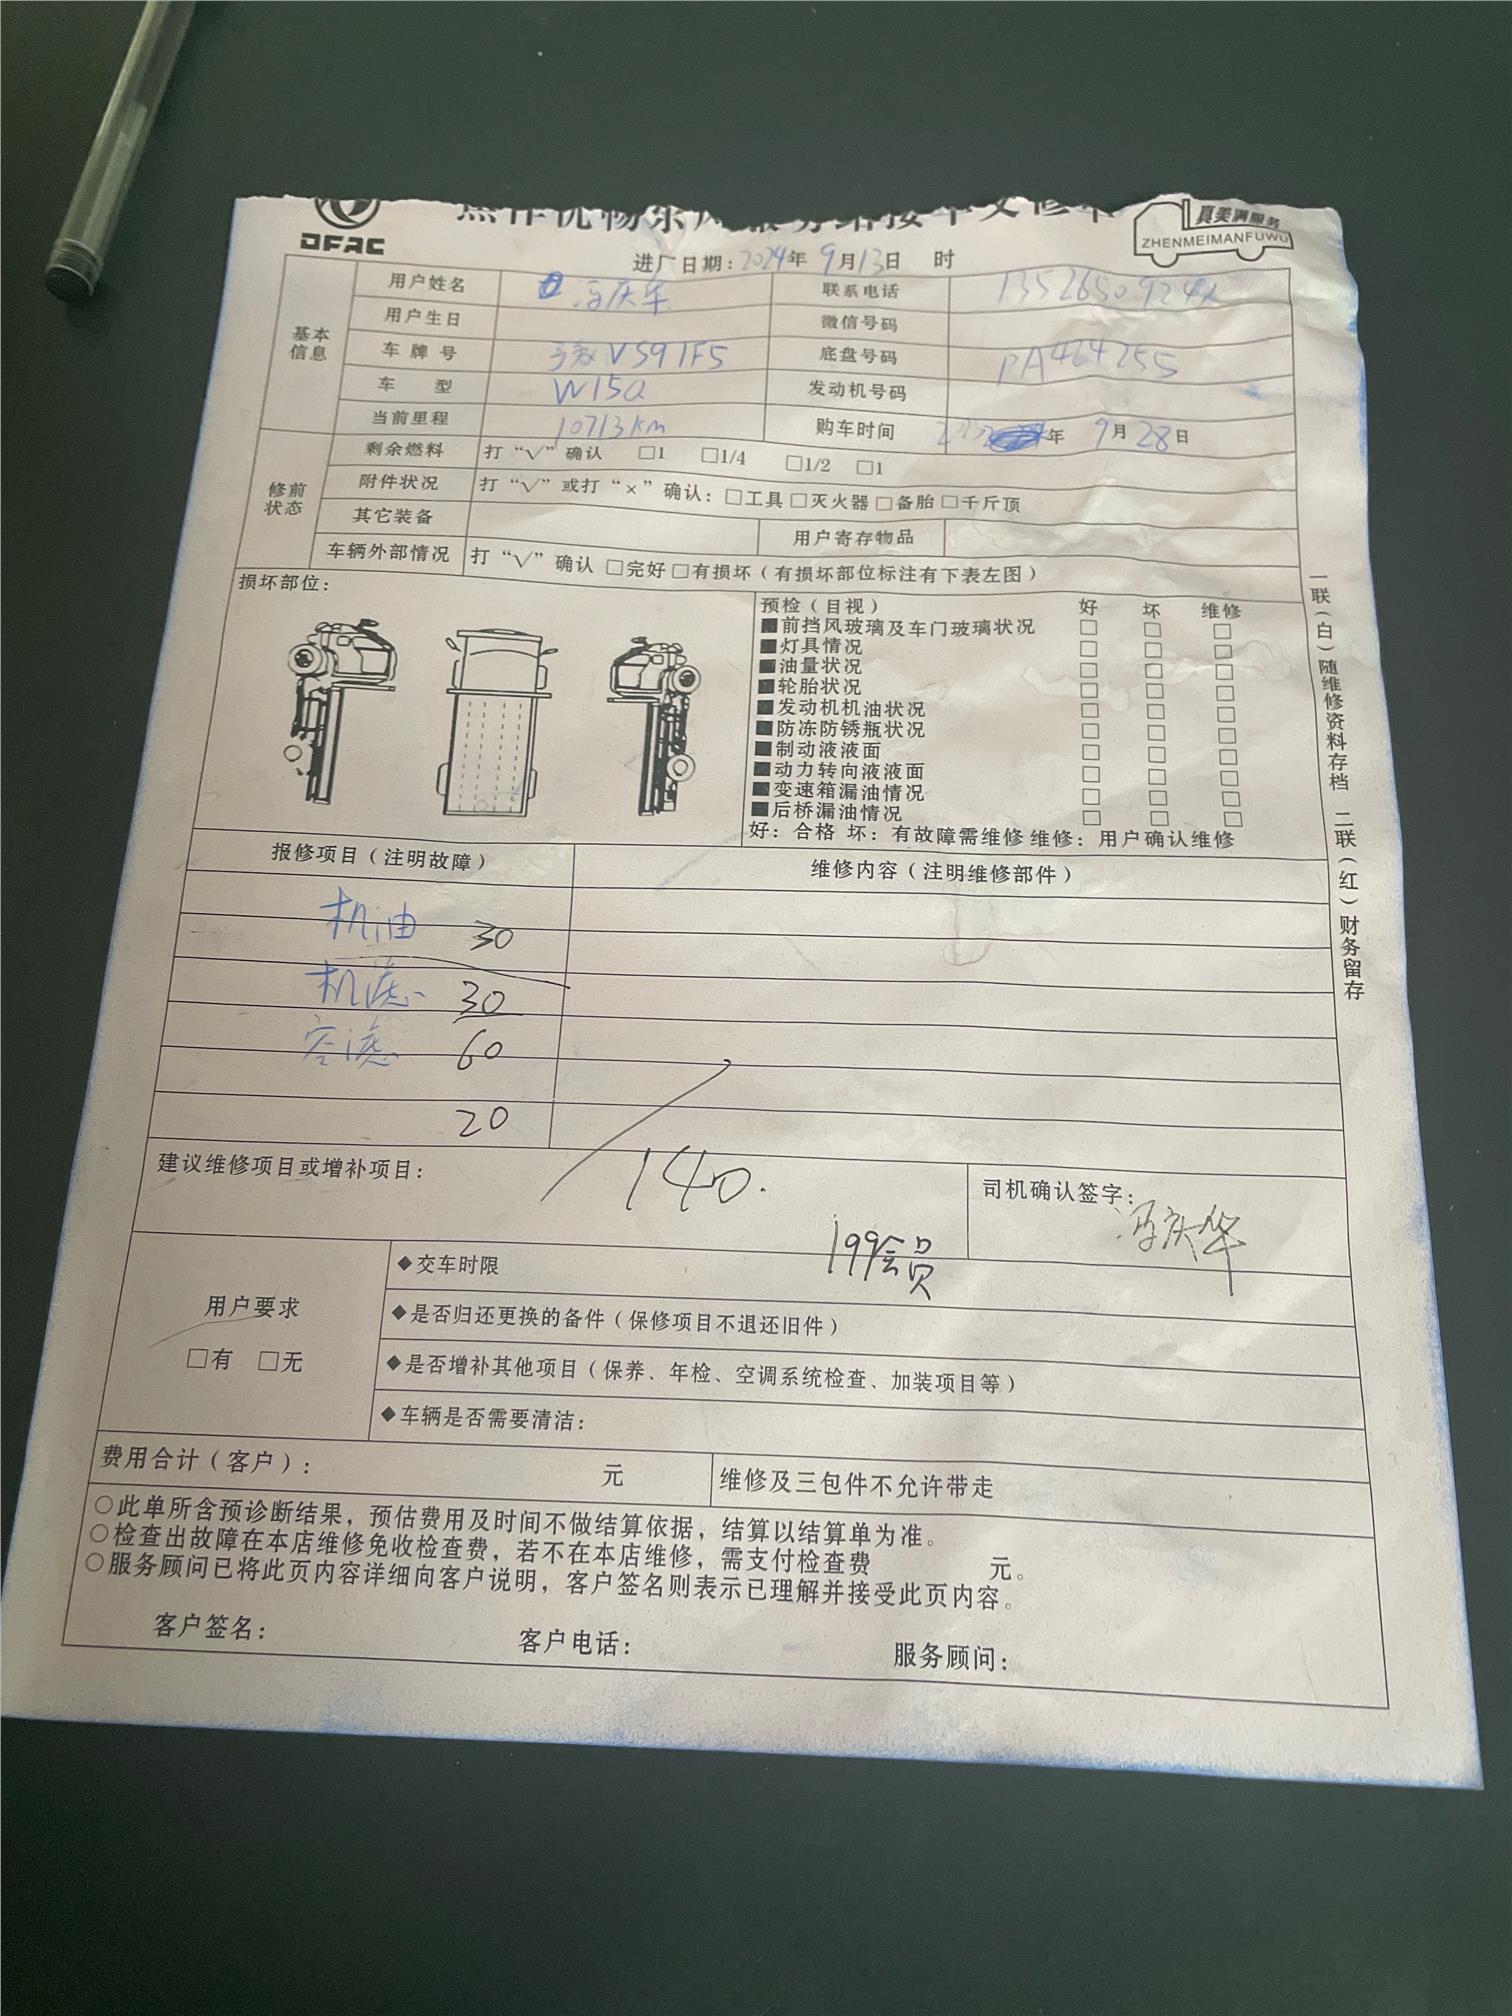 DFAC
真美满服务
ZHENMEIMANFUWU
进厂日期：2024年 9月13日 时
基本信息
用户姓名 冯庆华 联系电话
用户生日 微信号码
车牌号 VS91F5 底盘号码 PA464255
车 型 W15Q 发动机号码
当前里程 10713km 购车时间 年 9月28日
修前状态
剩余燃料 打“√”确认 □1 □1/4 □1/2 □1
附件状况 打“√”或打“×”确认：□工具 □灭火器 □备胎 □千斤顶
其它装备 用户寄存物品
车辆外部情况 打“√”确认 □完好 □有损坏（有损坏部位标注有下表左图）
损坏部位：
预检（目视） 好 坏 维修
■前挡风玻璃及车门玻璃状况 □ □ □
■灯具情况 □ □ □
■油量状况 □ □ □
■轮胎状况 □ □ □
■发动机机油状况 □ □ □
■防冻防锈瓶状况 □ □ □
■制动液液面 □ □ □
■动力转向液液面 □ □ □
■变速箱漏油情况 □ □ □
■后桥漏油情况 □ □ □
好：合格 坏：有故障需维修 维修：用户确认维修
报修项目（注明故障） 维修内容（注明维修部件）
机油 30
机滤 30
空滤 60
20
建议维修项目或增补项目： 140. 司机确认签字：
冯庆华
199会员
用户要求
□有 □无
◆交车时限
◆是否归还更换的备件（保修项目不退还旧件）
◆是否增补其他项目（保养、年检、空调系统检查、加装项目等）
◆车辆是否需要清洁：
费用合计（客户）： 元 维修及三包件不允许带走
○此单所含预诊断结果，预估费用及时间不做结算依据，结算以结算单为准。
○检查出故障在本店维修免收检查费，若不在本店维修，需支付检查费 元。
○服务顾问已将此页内容详细向客户说明，客户签名则表示已理解并接受此页内容。
客户签名： 客户电话： 服务顾问：
一联（白）随维修资料存档 二联（红）财务留存